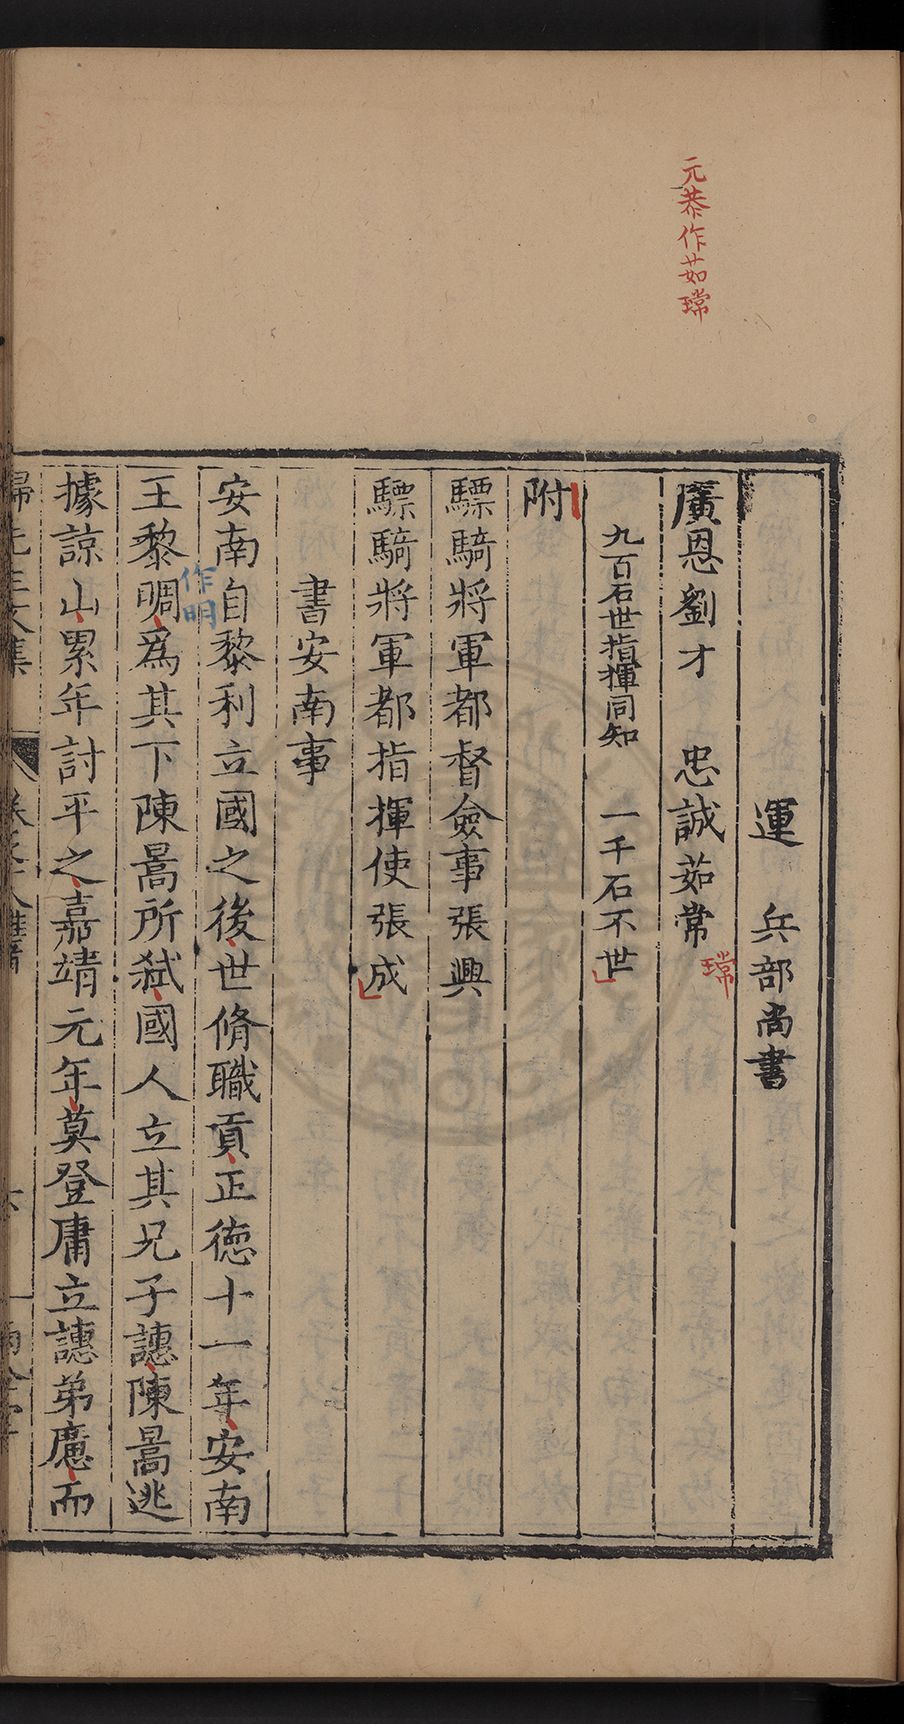 元恭作茹瑺
運　兵部尚書
廣恩劉才　忠誠茹常
瑺
九百石世指揮同知　一千石不世
附
驃騎將軍都督僉事張興
驃騎將軍都指揮使張成
書安南事
安南自黎利立國之後世脩職貢正德十一年安南
作明
王黎晭爲其下陳暠所弑國人立其兄子譓陳暠逃
據諒山累年討平之嘉靖元年莫登庸立譓弟廜而